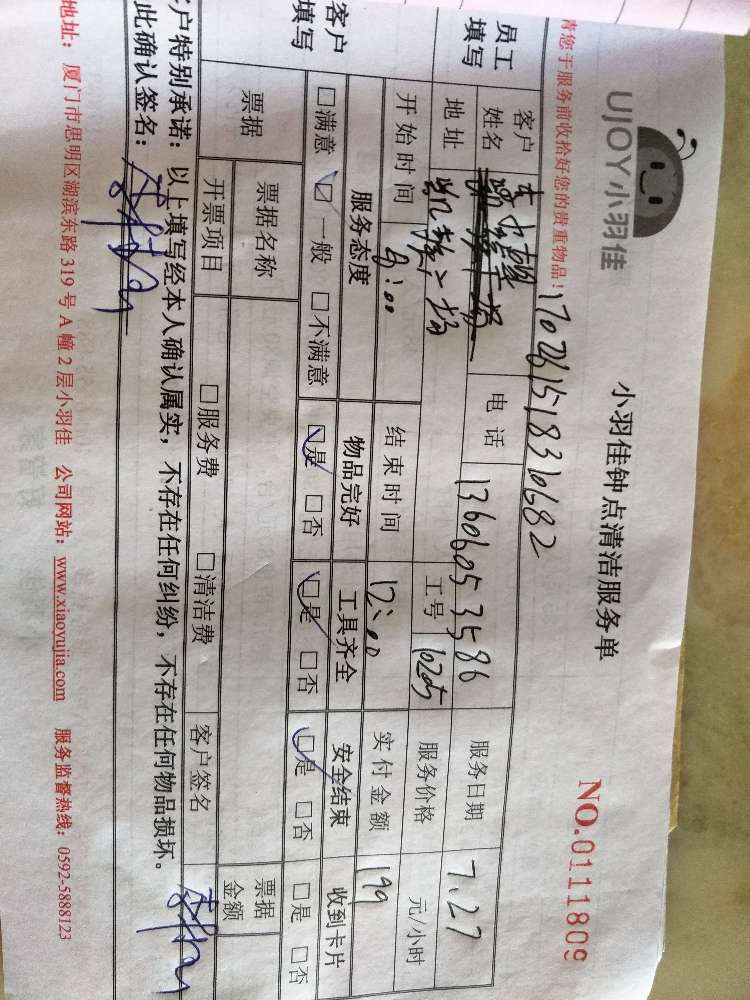 UJOY小羽佳
小羽佳钟点清洁服务单
NO.0111809
青您于服务前收拾好您的贵重物品！
170261518310682
员工填写
客户姓名
电话
13606053586
服务日期
7.27
地址
凯旋广场
工号
10205
服务价格
元/小时
开始时间
9:00
结束时间
12:00
实付金额
199
客户填写
服务态度
物品完好
工具齐全
安全结束
收到卡片
□满意 □一般 □不满意
□是 □否
□是 □否
□是 □否
□是 □否
票据
票据名称
票据金额
开票项目
□服务费
□清洁费
客户签名
客户特别承诺：以上填写经本人确认属实，不存在任何纠纷，不存在任何物品损坏。
此确认签名：
地址：厦门市思明区湖滨东路319号A幢2层小羽佳 公司网站：www.xiaoyujia.com 服务监督热线：0592-5888123